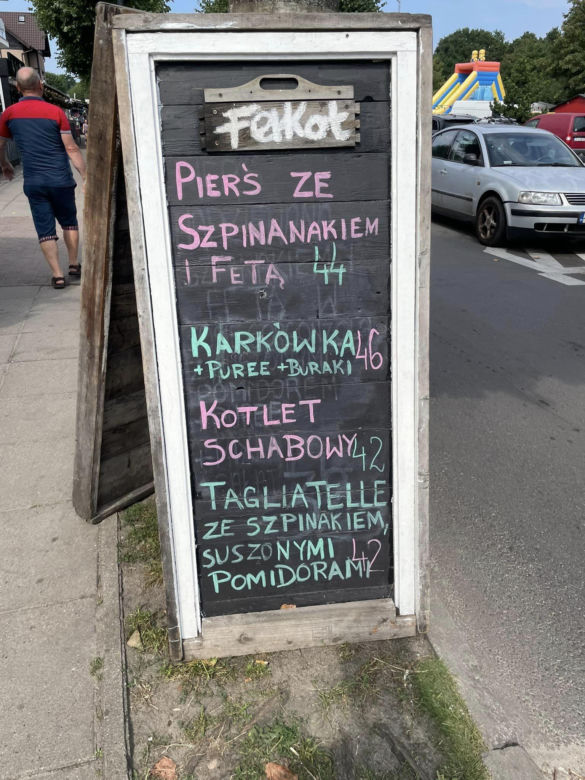 FeRKot
PIERŚ ZE
SZPINANAKIEM
I FETĄ 44
KARKÓWKA 46
+PUREE +BURAKI
KOTLET
SCHABOWY 42
TAGLIATELLE
ZE SZPINAKIEM,
SUSZONYMI 42
POMIDORAMI